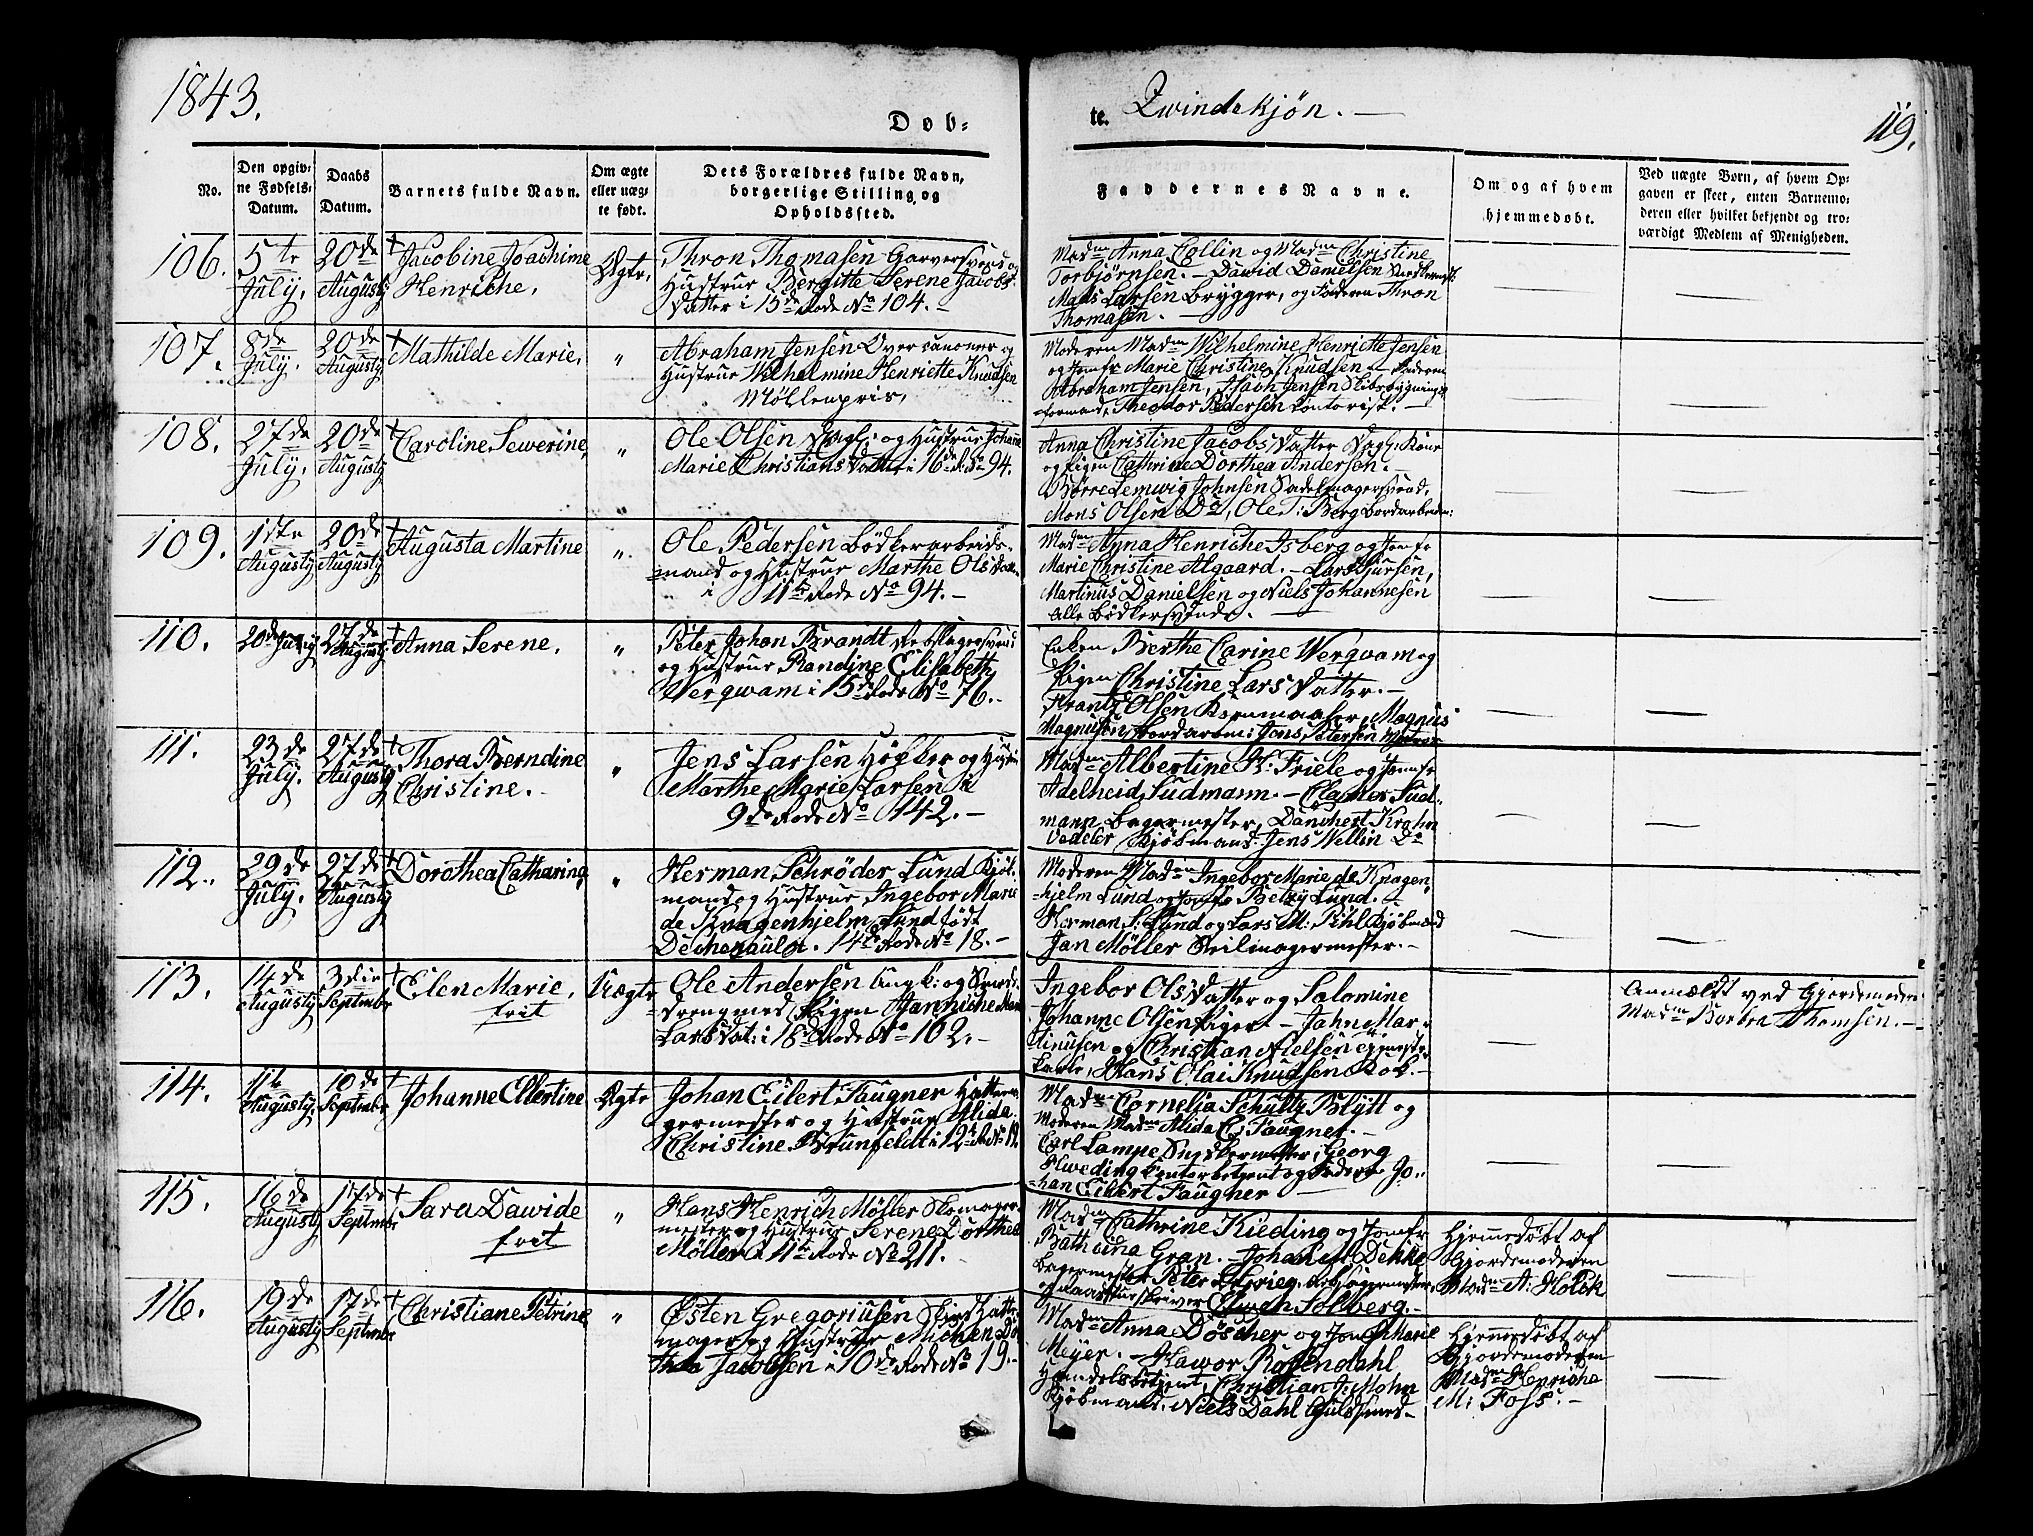 1843.
Døb-
te. Qvindekjøn. —
119.
No.
Den opgiv-
ne Fødsels-
Datum.
Daabs
Datum.
Barnets fulde Navn.
Om ægte
eller uæg-
te født.
Dets Forældres fulde Navn,
borgerlige Stilling, og
Opholdssted.
Faddernes Navne.
Om og af hvem
hjemmedøbt.
Ved uægte Børn, af hvem Op-
gaven er skeet, enten Barnemo-
deren eller hvilket bekjendt og tro-
værdigt Medlem af Menigheden.
106.
5te
July.
20de
Augusty
Jacobine Joachime
Henriche.
Ægte,
Thron Thomasen Garversvend og
Hustrue Bergitte Serene Jacobs-
Datter i 15de Rode No 104. —
Madm Anna Collin og Madm Christine
Torbjørnsen. — Dawid Danielsen
Mads Larsen Brygger, og Faderen Thron
Thomasen. —
107.
8de
July.
20de
Augusty
Mathilde Marie,
"
Abraham Jensen Overcanoner og
Hustrue Wilhelmine Henriette Knudsen
Møllenpris,
Moderen Madm Wilhelmine Henriette Jensen
og Jomfr Marie Christine Knudsen — Faderen
Abraham Jensen, Jensen Skibsbygnings
formand, Theodor Pedersen Contorist. —
108.
27de
July.
20de
Augusty
Caroline Sewerine,
"
Ole Olsen Dagl: og Hustrue Johanne
Marie Christians Datter i 16de R. No 94.
Anna Christine Jacobs Datter Dagl: Kone
og Pigen Cathrine Dorthea Andersen. —
Børre Lemwig Johnsen Sadelmagersvend,
Mons Olsen Do, Ole T: Berg bordarbeider:
109.
1ste
Augusty
20de
Augusty
Augusta Martine
"
Ole Pedersen Bødkerarbeids-
mand og Hustrue Marthe Ols Datt.
i 11te Rode No 94. —
Madm Anna Henriche Isberg og Jomfr
Marie Christine Algaard. — Lars Sjursen,
Martinus Danielsen og Niels Johannesen
alle Bødkersvende. —
110.
20de July
27de
Augusty
Anna Serene,
"
Peter Johan Brandt Rebslagersvend
og Hustrue Randine Elisabeth
Wergwam i 15de Rode No 76. —
Enken Berthe Carine Wergwam og
Pigen Christine Lars Datter. —
Frantz Olsen, Magnus
Magnusen, bordarbei: Jens Petersen Matros
111.
23de
July.
27de
Augusty
Thora Berndine
Christine. —
"
Jens Larsen Høkker og Hustrue
Marthe Marie Larsen i
9de Rode No 142. —
Madm Albertine H: Friele og Jomfr
Adelheid Sudmann. — Sud-
mann Bagermester, Danchert Krohn
Vedeler Kjøbmand. Jens Wellin Do
112.
29de
July.
27de
Augusty
Dorothea Catharina
"
Herman Schrøder Lund Kjøb-
mand og Hustrue Ingebor Marie
de Knagenhjelm Lund født
Dechenaulot. 14de Rode No 18. —
Moderen Madm Ingebor Marie de Knagen-
hjelm Lund og Jomfr Betzy Lund. —
Herman S: Lund og Lars M: Pihl Kjøbmænd
Jan Møller Seilmagermester. —
113.
14de
Augusty
3die
September
Elen Marie,
frit
Uægte
Ole Andersen Ungk: og
Drengmed Pigen Hanniche
Lars Dat: i 18de Rode No 102. —
Ingebor Ols Datter og Salomine
Johanne Olsen Piger — Jahn Mar-
tinusen og Christian Nielsen
Hans Olai Knudsen
Anmældt ved Gjordemoder
Madm Barbra Thomsen. —
114.
11te
Augusty
10de
September
Johanne Ellertine
Ægte
Johan Eilert Faugner Hattem-
agermester og Hustrue Alida
Christine Brunfeldt i 12te R. No
Madm Cornelia Schultz Blytt og
Moderen Madm Alida C: Faugner. —
Carl Lampe Snedkermester, Georg
Hweding Contorbetjent og Faderen Jo-
han Eilert Faugner —
115.
16de
Augusty
17de
September
Sara Dawide
frit
"
Hans Henrich Møller Skomager-
mester og Hustrue Serene Dorthea
Møller i 11te Rode No 211.
Madm Cathrine Kieding og Jomfr
Bathsina Gran. — Johan M: Dekke
Bagermester, Peter Grieg,
Solberg. —
Hjemmedøbt af
Gjordemoderen
Madm A: Holch
116.
19de
Augusty
17de
September
Christiane Petrine
"
Østen Gregoriusen
mager og Hustrue Michen Do
thea Jacobsen i 10de Rode No 19. —
Madm Anna Døscher og Jomfr Marie
Meyer. — Hawor Rosendahl
Handelsbetjent, Christian J: Mohn
Kjøbmand, Niels Dahl Guldsmed —
Hjemmedøbt af
Gjordemoderen
Madm Henriche
M: Foss. —